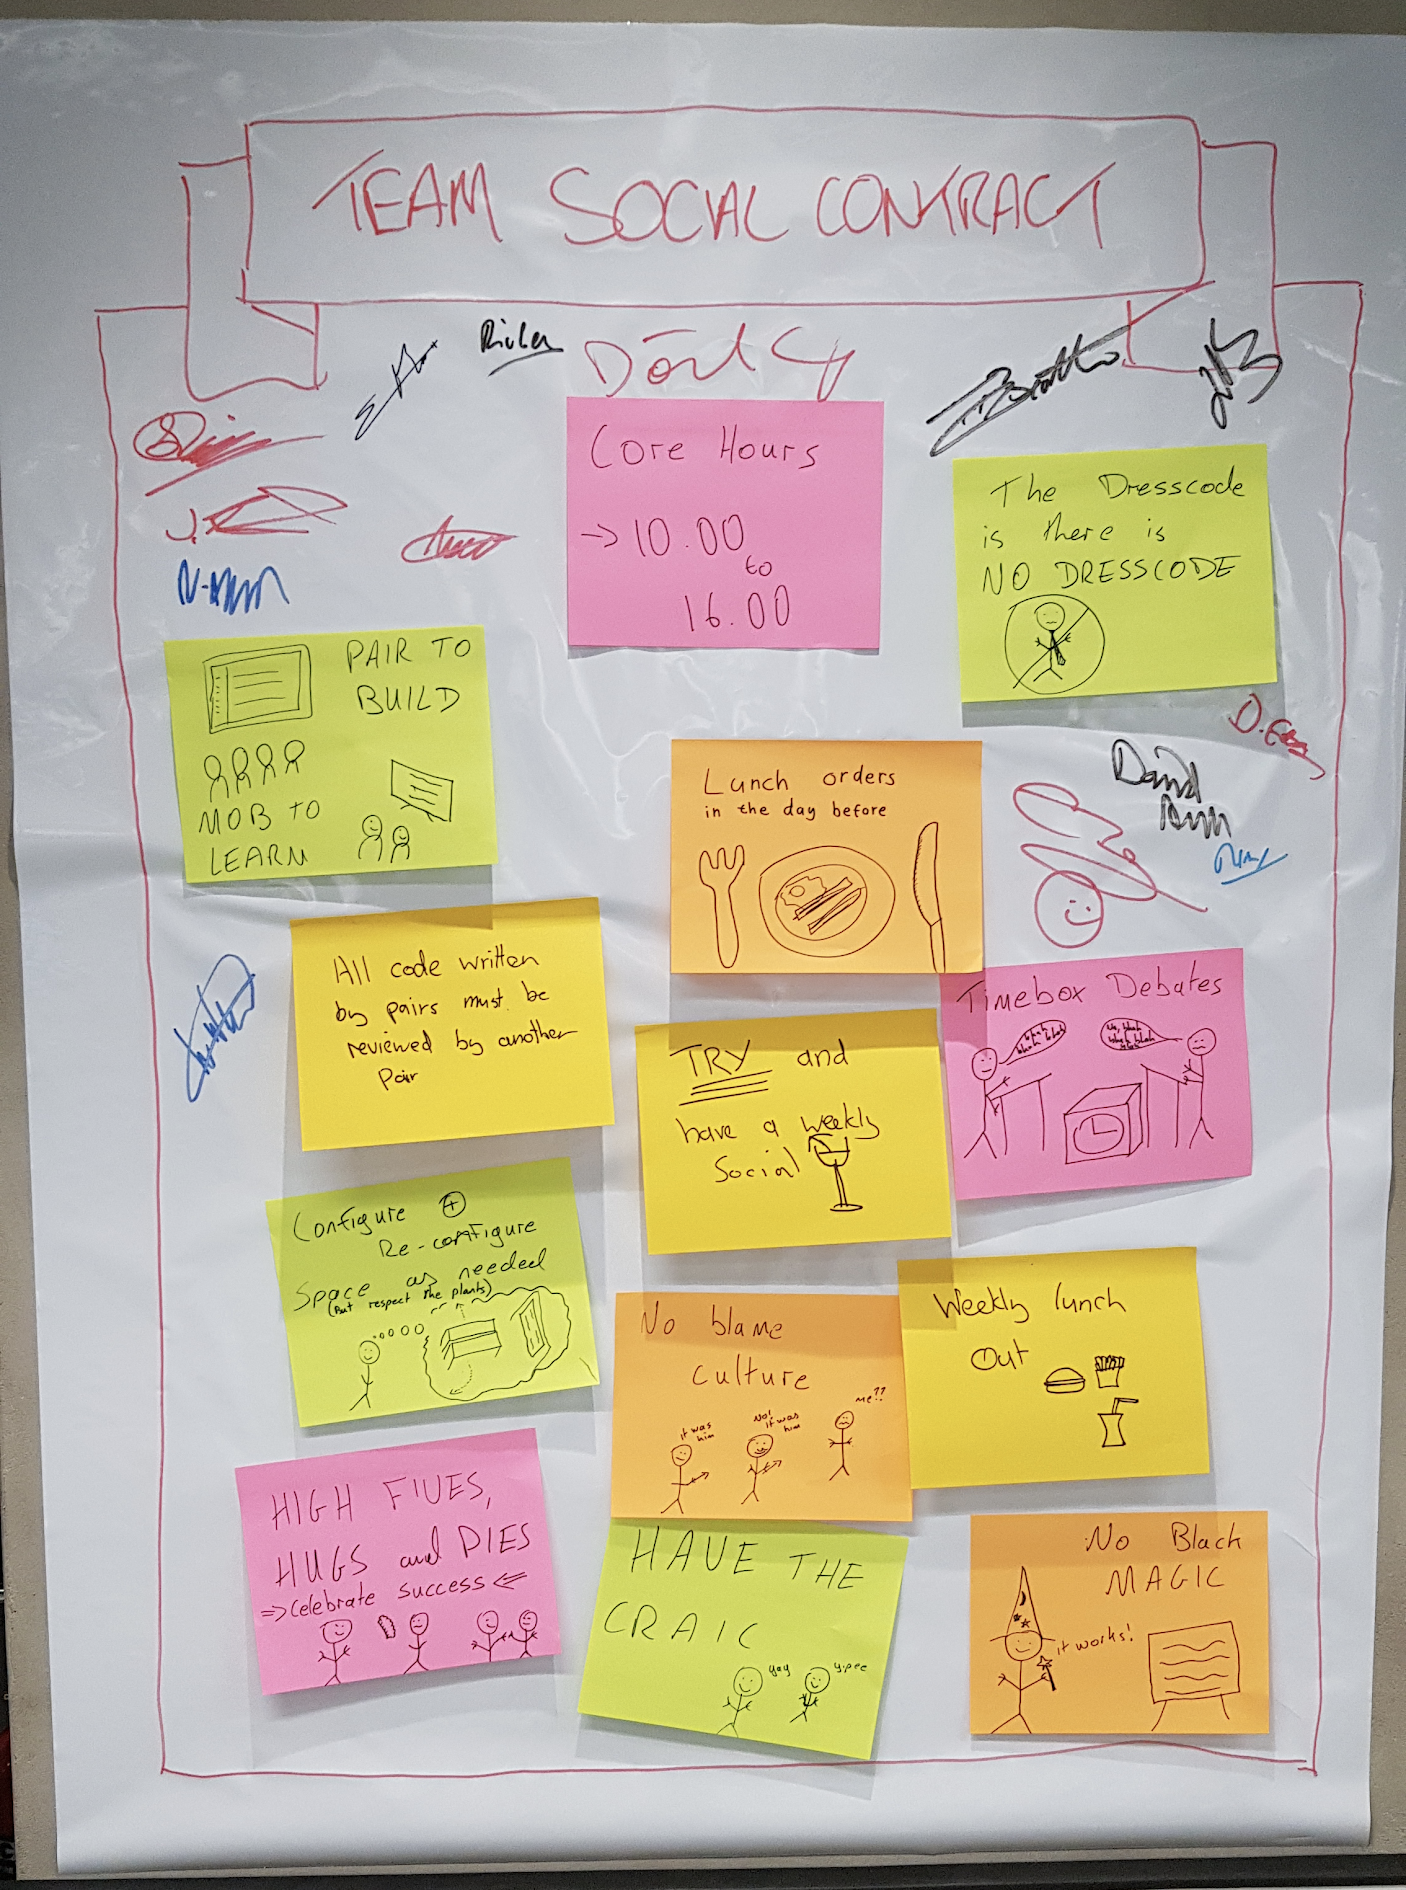 TEAM SOCIAL CONTRACT
Core Hours
→ 10.00
to
16.00
The Dresscode
is there is
NO DRESSCODE
PAIR TO
BUILD
MOB TO
LEARN
Lunch orders
in the day before
David
All code written
by pairs must be
reviewed by another
pair
TRY and
have a weekly
Social
Timebox Debates
blah
blah blah
blah blah
blah
Configure +
Re-configure
Space as needed
(But respect the plants)
No blame
culture
it was
him
No!
it was
him
me??
Weekly lunch
Out
HIGH FIVES,
HUGS and PIES
⇒ celebrate success ⇐
HAVE THE
CRAIC
yay
yipee
No Black
MAGIC
it works!